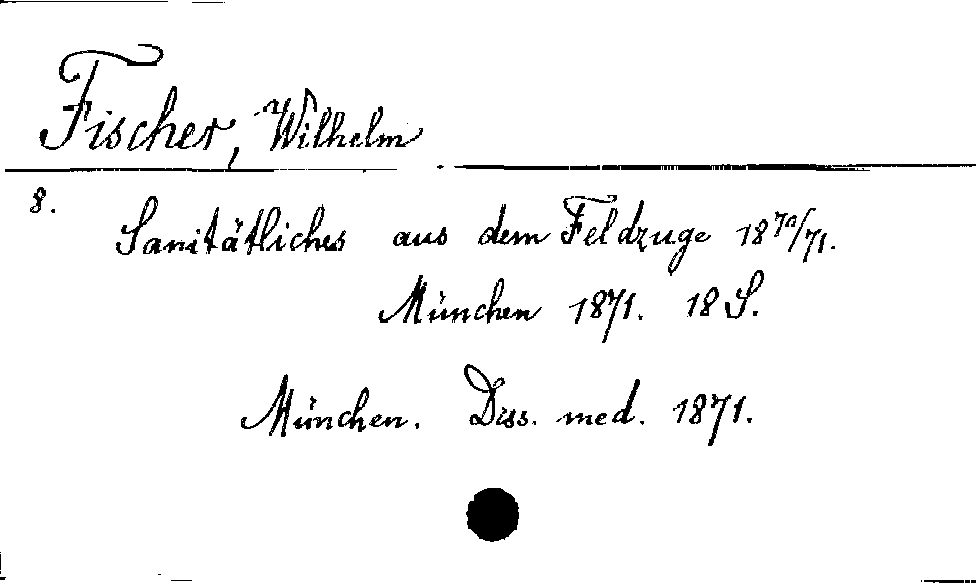 Fischer, Wilhelm
8.
Sanitätliches aus dem Feldzuge 1870/71.
München 1871. 18 S.
München. Diss. med. 1871.